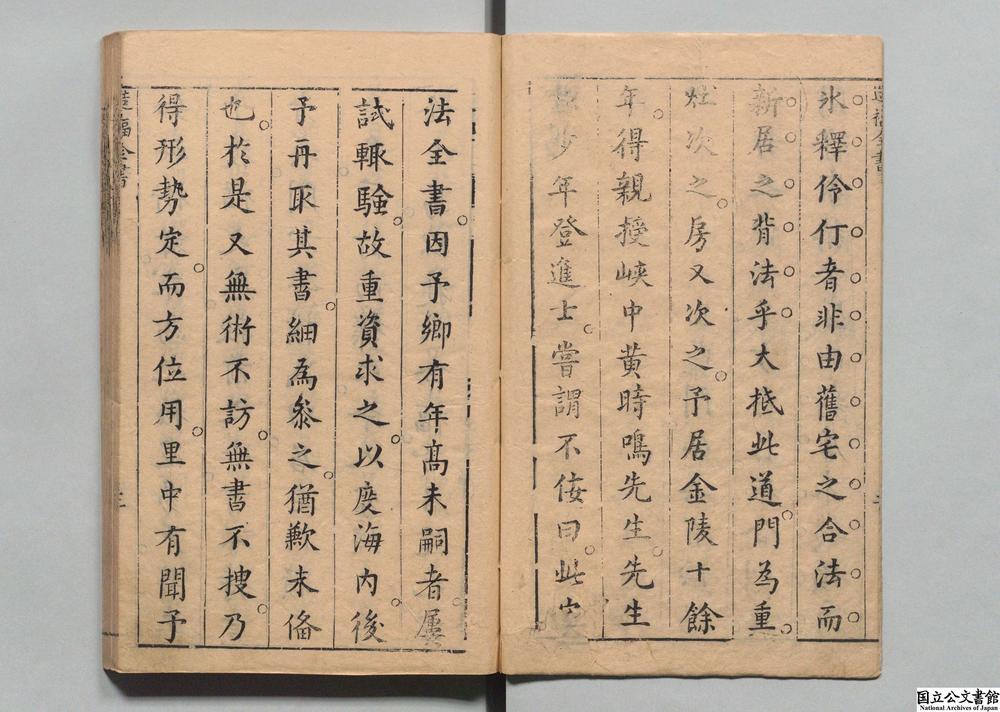 氷釋伶仃者非由舊宅之合法而
新居之背法乎大抵此道門為重
灶次之房又次之予居金陵十餘
年得親授峽中黄時鳴先生先生
少年登進士嘗謂不佞曰此
法全書因予鄉有年髙未嗣者屢
試輒驗故重資求之以度海内後
予再取其書細為叅之猶歉未俻
也於是又無術不訪無書不搜乃
得形勢定而方位用里中有聞予
造福全書
国立公文書館
National Archives of Japan